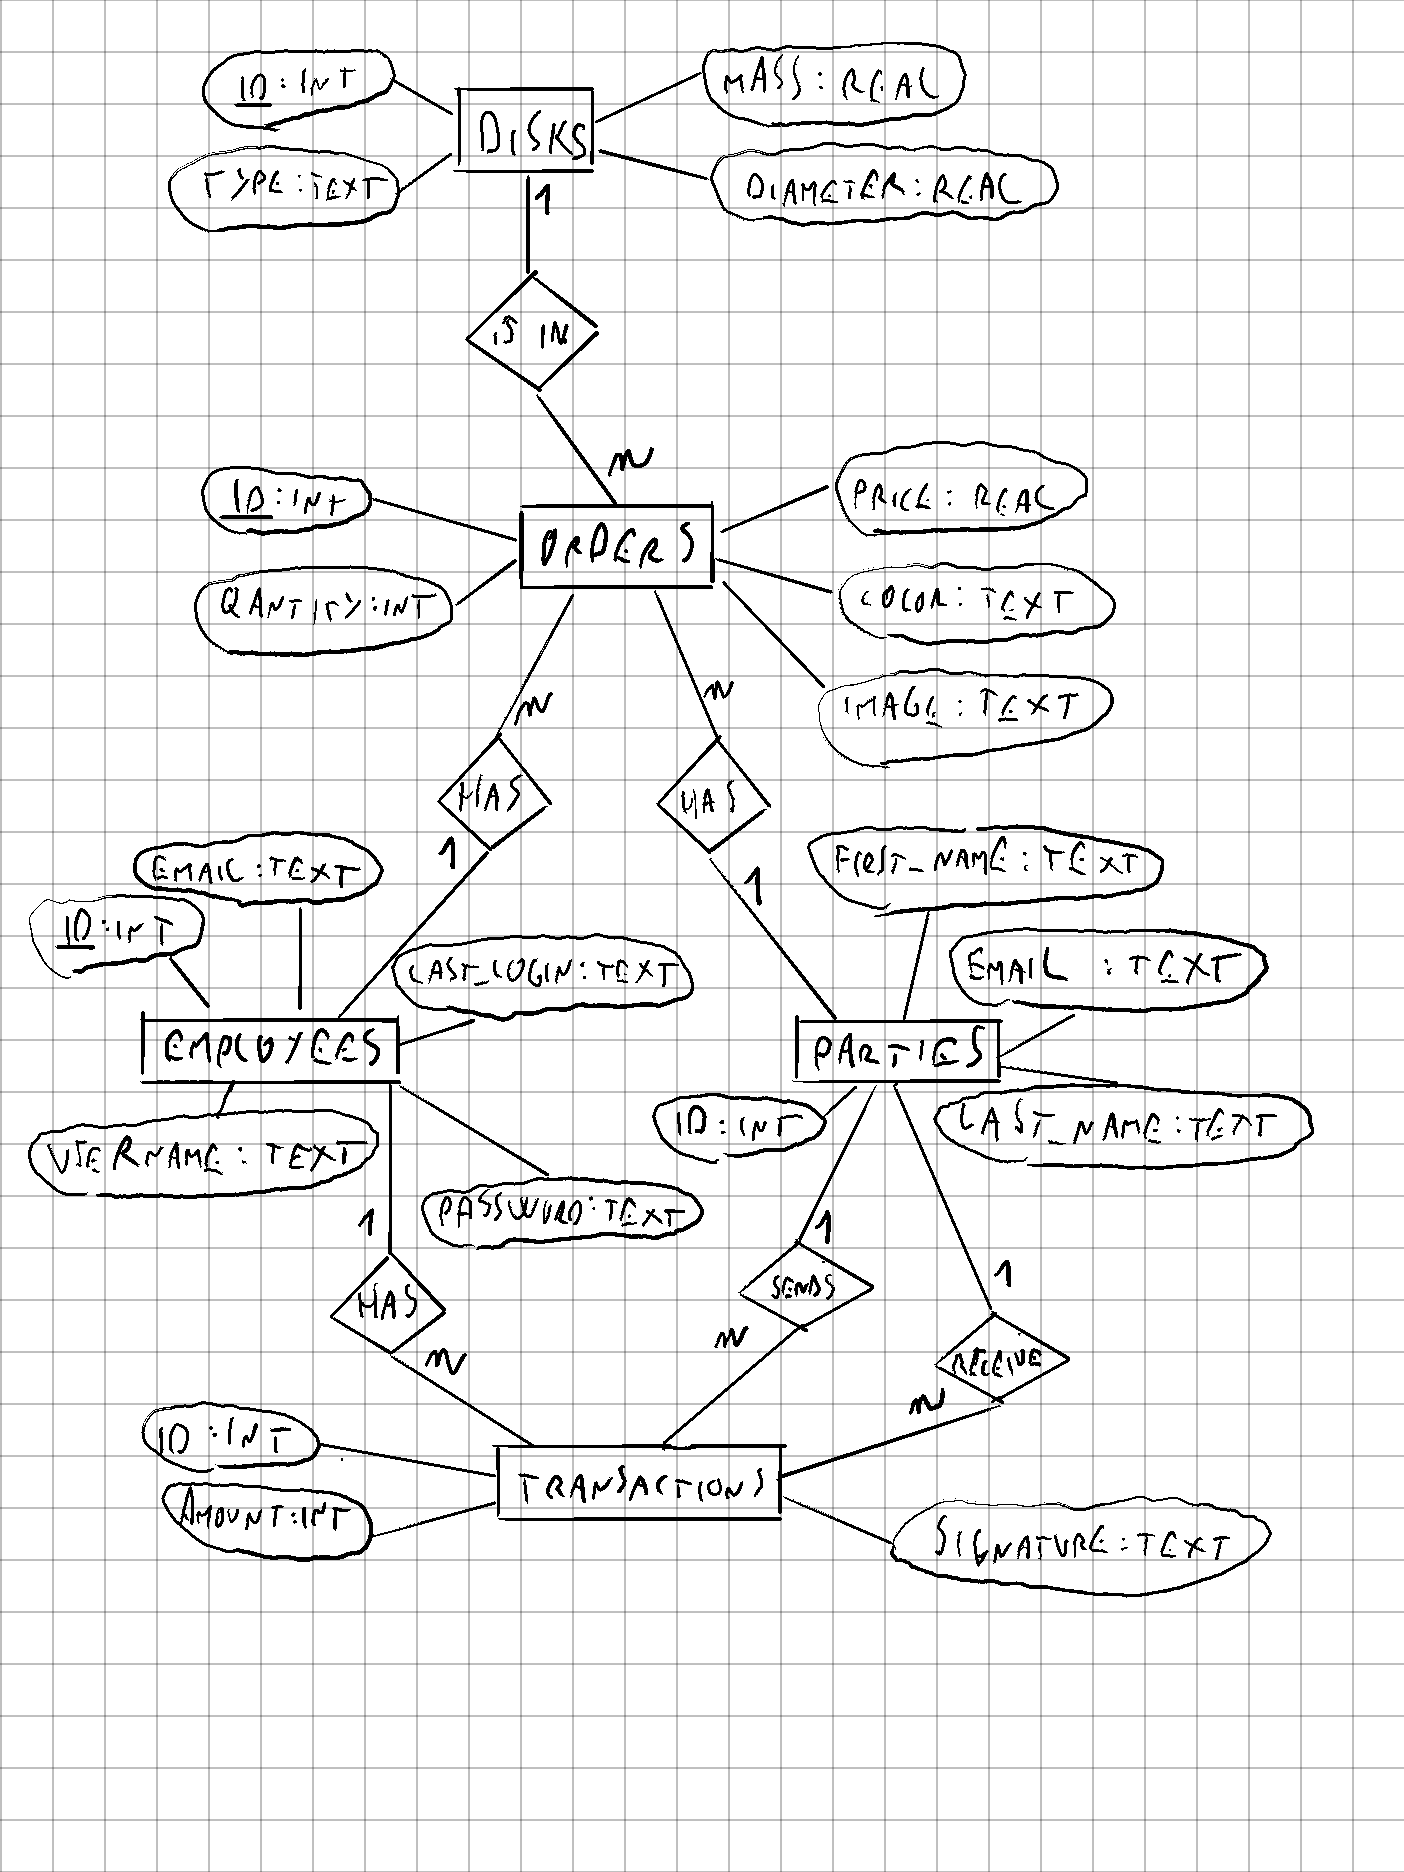 ID:INT
MASS:REAL
DISKS
TYPE:TEXT
DIAMETER:REAL
1
IS IN
N
ID:INT
PRICE:REAL
ORDERS
QANTITY:INT
COLOR:TEXT
IMAGE:TEXT
N
N
HAS
HAS
1
1
EMAIL:TEXT
FIRST_NAME:TEXT
ID:INT
LAST_LOGIN:TEXT
EMAIL :TEXT
EMPLOYEES
PARTIES
ID:INT
LAST_NAME:TEXT
USERNAME:TEXT
PASSWORD:TEXT
1
1
1
HAS
SENDS
N
N
RECEIVE
N
ID:INT
TRANSACTIONS
AMOUNT:INT
SIGNATURE:TEXT